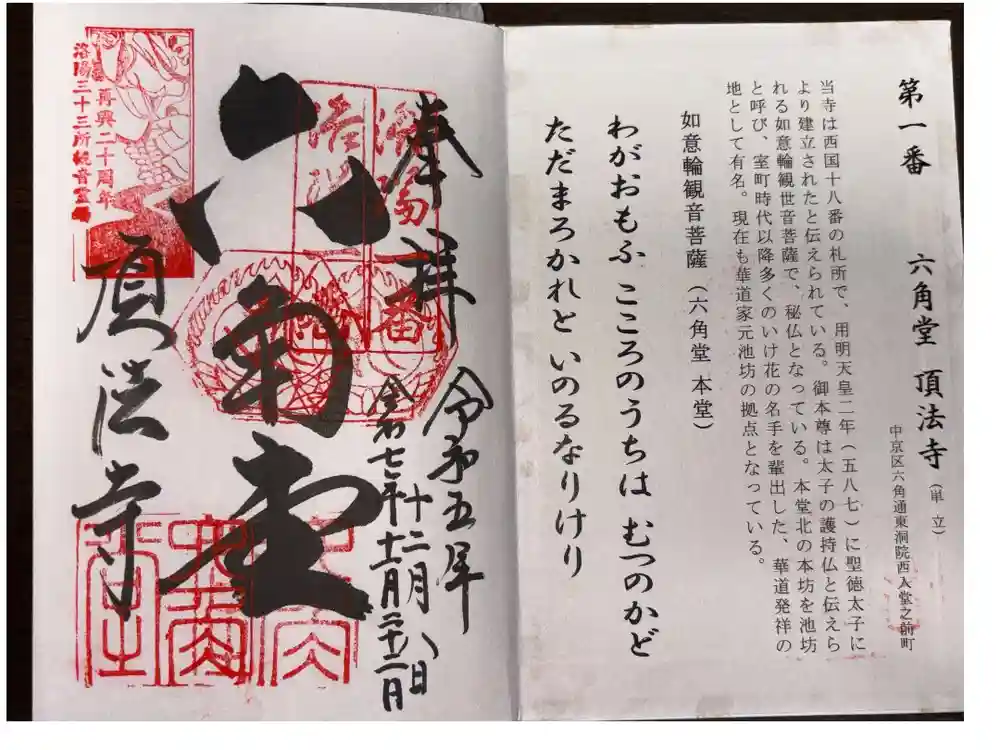 第一番　六角堂　頂法寺（単立）
中京区六角通東洞院西入堂之前町
当寺は西国十八番の札所で、用明天皇二年（五八七）に聖徳太子に
より建立されたと伝えられている。御本尊は太子の護持仏と伝えら
れる如意輪観世音菩薩で、秘仏となっている。本堂北の本坊を池坊
と呼び、室町時代以降多くのいけ花の名手を輩出した、華道発祥の
地として有名。現在も華道家元池坊の拠点となっている。
如意輪観音菩薩（六角堂 本堂）
わがおもふ こころのうちは むつのかど
ただまろかれと いのるなりけり
奉拝
令和五年
十二月八日
令和七年十一月二十二日
洛陽
第一番
六角堂
頂法寺
再興二十周年
洛陽三十三所観音霊場